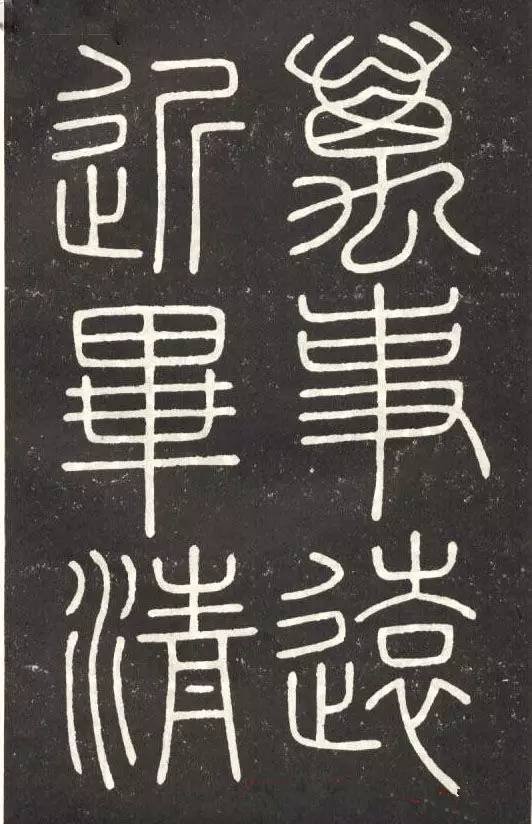 萬事遠
近畢清